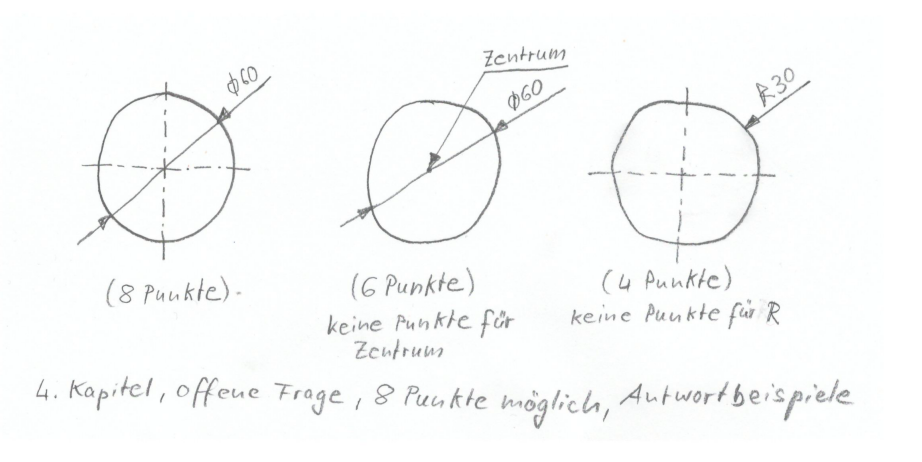 Zentrum
ϕ60
ϕ60
R30
(8 Punkte).
(6 Punkte)
keine Punkte für
Zentrum
(4 Punkte)
keine Punkte für R
4. Kapitel, offene Frage, 8 Punkte möglich, Antwortbeispiele